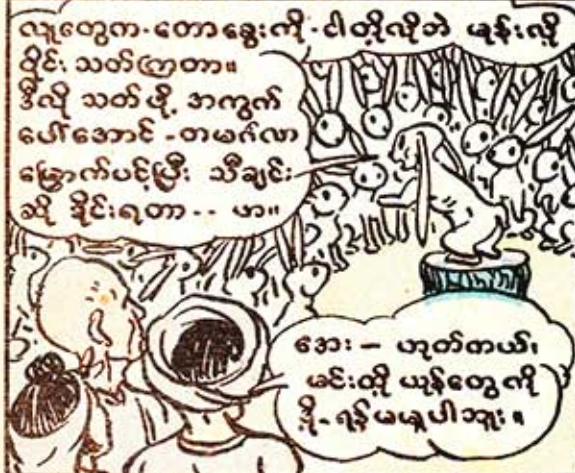 လူတွေက-တောခွေးကို-ငါတို့လိုဘဲ မုန်းလို့
ဝိုင်းသတ်ကြတာ။
ဒီလို သတ်ဖို့ အကွက်
ပေါ်အောင် -တမင်္ဂလာ
မြှောက်ပင့်ပြီး သီချင်း
ဆို ခိုင်းရတာ-- ဟာ။
အေး – ဟုတ်ကယ်၊
မင်းတို့ ယုန်တွေကို
ဒို့-ရန်မမူပါဘူး။